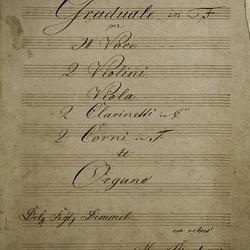 Graduale in F
per
4 Voce
2 Violini
Viola
2 Clarinetti in C
2 Corni in F
et
Organo
Del: Demmel
ex rebus